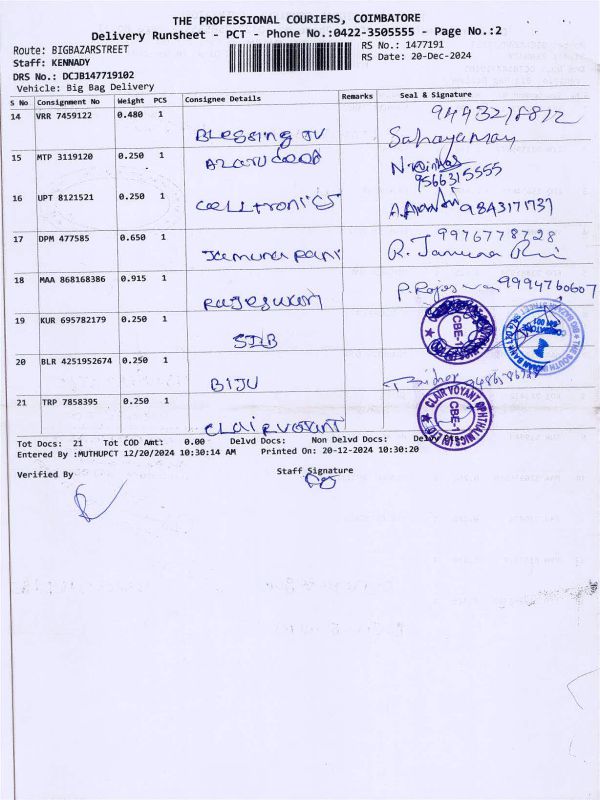 THE PROFESSIONAL COURIERS, COIMBATORE
Delivery Runsheet - PCT - Phone No.:0422-3505555 - Page No.:2
Route: BIGBAZARSTREET RS No.: 1477191
Staff: KENNADY RS Date: 20-Dec-2024
DRS No.: DCJB147719102
Vehicle: Big Bag Delivery
S No Consignment No Weight PCS Consignee Details Remarks Seal & Signature
14 VRR 7459122 0.480 1 Blessing JV
15 MTP 3119120 0.250 1 9566315555
16 UPT 8121521 0.250 1 celltronics 9843171731
17 DPM 477585 0.650 1 Jamuna pani R. Jamuna 9976778728
18 MAA 868168386 0.915 1 9994760607
19 KUR 695782179 0.250 1 SIB
20 BLR 4251952674 0.250 1 BIJU
21 TRP 7858395 0.250 1 Clairvoyant CLAIR VOYANT OPHTHALMICS CBE-1
Tot Docs: 21 Tot COD Amt: 0.00 Delvd Docs: Non Delvd Docs:
Entered By :MUTHUPCT 12/20/2024 10:30:14 AM Printed On: 20-12-2024 10:30:20
Verified By Staff Signature